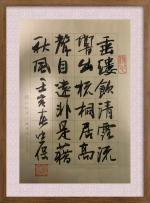 垂緌飲清露流
響出疏桐居高
聲自遠非是藉
秋風壬寅春